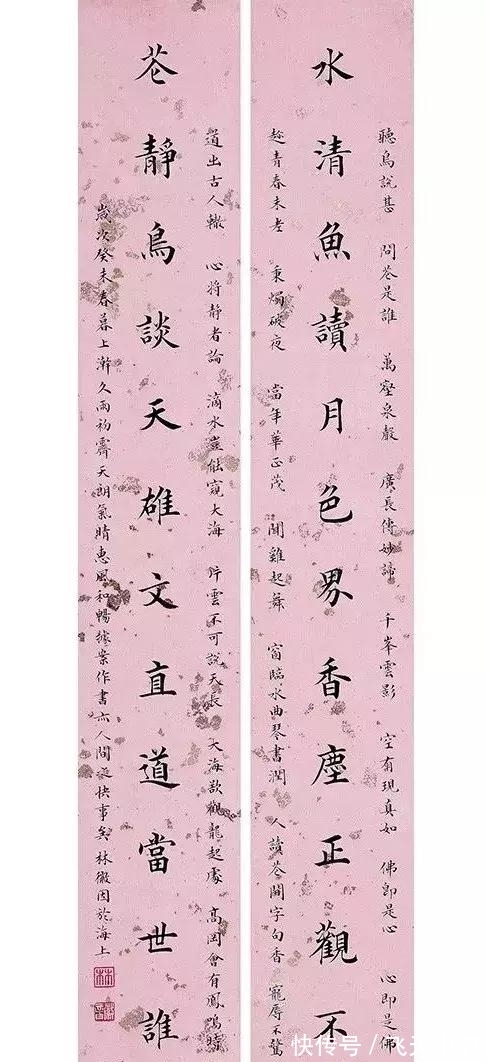 聽鳥說甚 問花是誰 萬壑泉聲 廣長傳妙諦 千峯雲影 空有現真如 佛即是心 心即是佛
水清魚讀月色界香塵正觀不
趁青春未老 秉燭破夜 當年華正茂 聞雞起舞 窗臨水曲琴書潤 人讀花間字句香 寵辱不驚
道出古人轍 心將靜者論 滴水豈能窺大海 片雲不可說天長 大海欲觀龍起處 高岡會有鳳鳴時
花靜鳥談天雄文直道當世誰
歲次癸未春暮上澣久雨初霽天朗氣晴惠風和暢據案作書亦人間快事矣 林徽因於海上
快传号